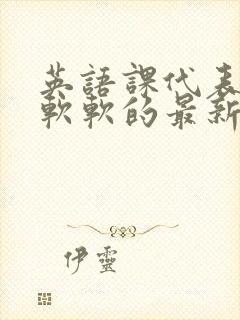 英語課代表
軟軟的最新
伊靈